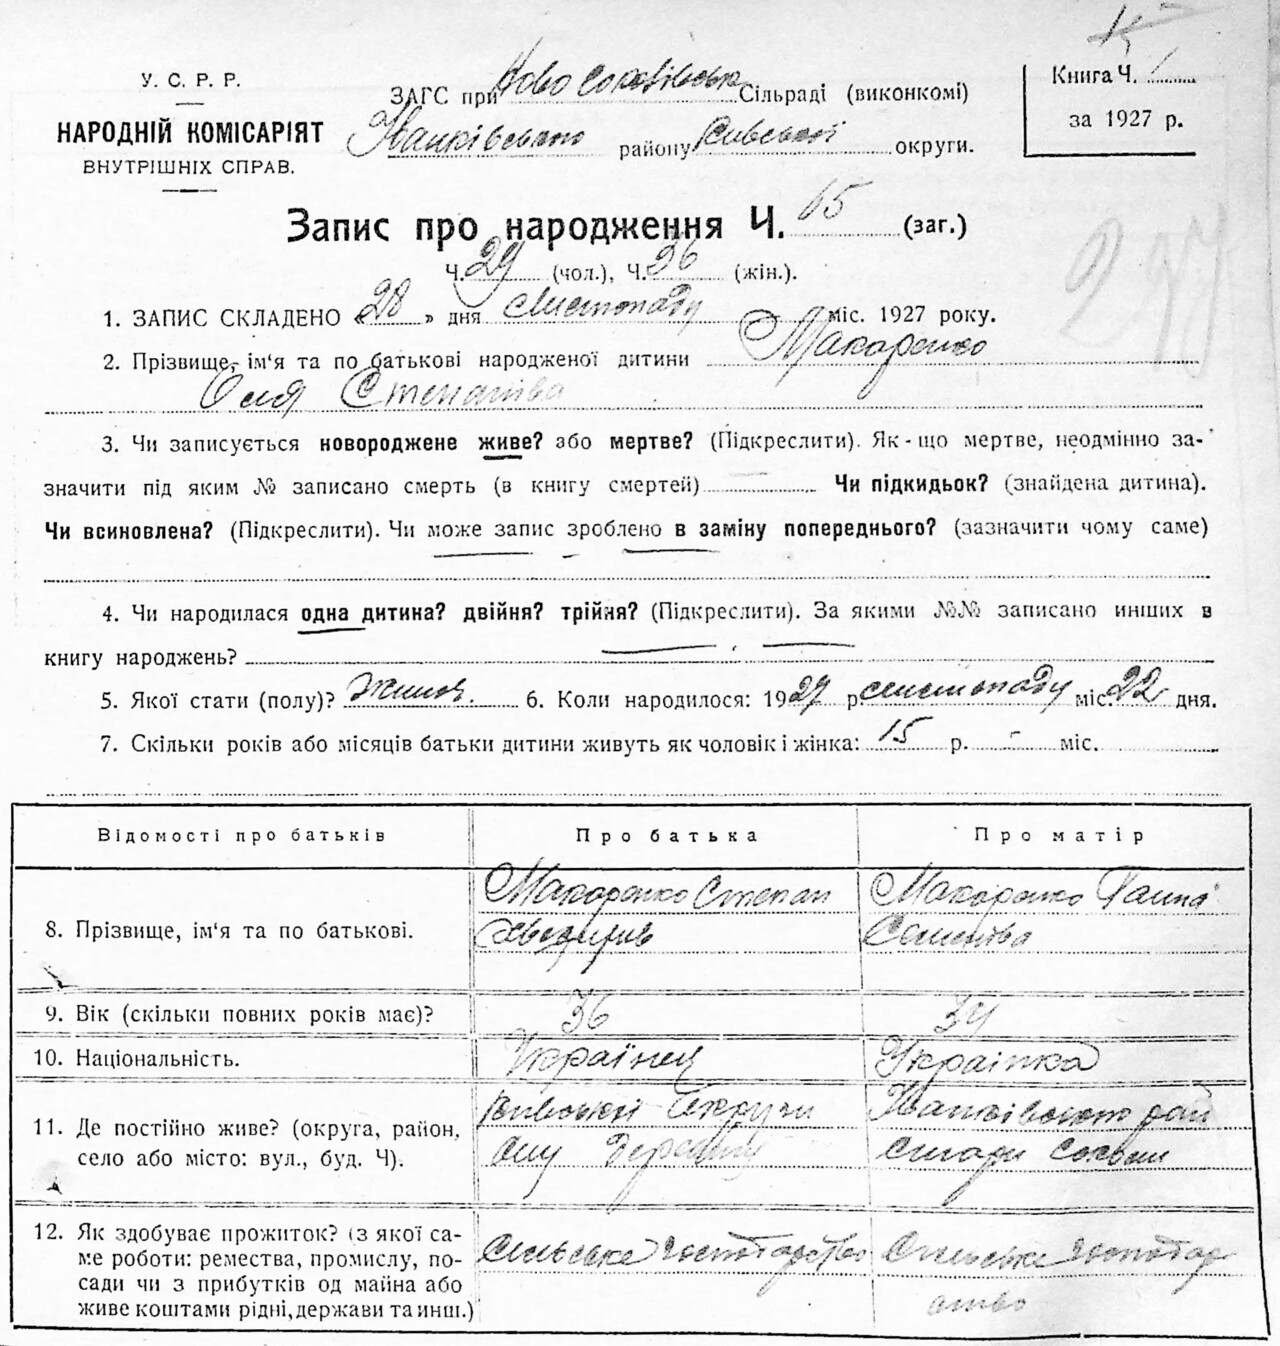 У. С. Р. Р.
НАРОДНІЙ КОМІСАРІЯТ
ВНУТРІШНІХ СПРАВ.
ЗАГС при Ново Соколівськ Сільраді (виконкомі)
Іванківського району Київської округи.
Книга Ч. 1
за 1927 р.
Запис про народження Ч. 65 (заг.)
Ч. 29 (чол.), Ч. 36 (жін.).
297
1. ЗАПИС СКЛАДЕНО «28» дня Листопаду міс. 1927 року.
2. Прізвище, ім'я та по батькові народженої дитини Макаренко
Оля Степанівна
3. Чи записується новороджене живе? або мертве? (Підкреслити). Як-що мертве, неодмінно за-
значити під яким № записано смерть (в книгу смертей) Чи підкидьок? (знайдена дитина).
Чи всиновлена? (Підкреслити). Чи може запис зроблено в заміну попереднього? (зазначити чому саме)
4. Чи народилася одна дитина? двійня? трійня? (Підкреслити). За якими №№ записано инших в
книгу народжень?
5. Якої стати (полу)? Жиноч. 6. Коли народилося: 1927 р. листопаду міс. 22 дня.
7. Скільки років або місяців батьки дитини живуть як чоловік і жінка: 15 р. - міс.
Відомості про батьків Про батька Про матір
8. Прізвище, ім'я та по батькові. Макаренко Степан Макаренко Ганна
Семенівна
9. Вік (скільки повних років має)? 36 34
10. Національність. Українец Українка
11. Де постійно живе? (округа, район, Київської Округи Іванківського рай
село або місто: вул., буд. Ч).
12. Як здобуває прожиток? (з якої са-
ме роботи: ремества, промислу, по- Сільське господарство Сільське господар
сади чи з прибутків од майна або
живе коштами рідні, держави та инш.) ство